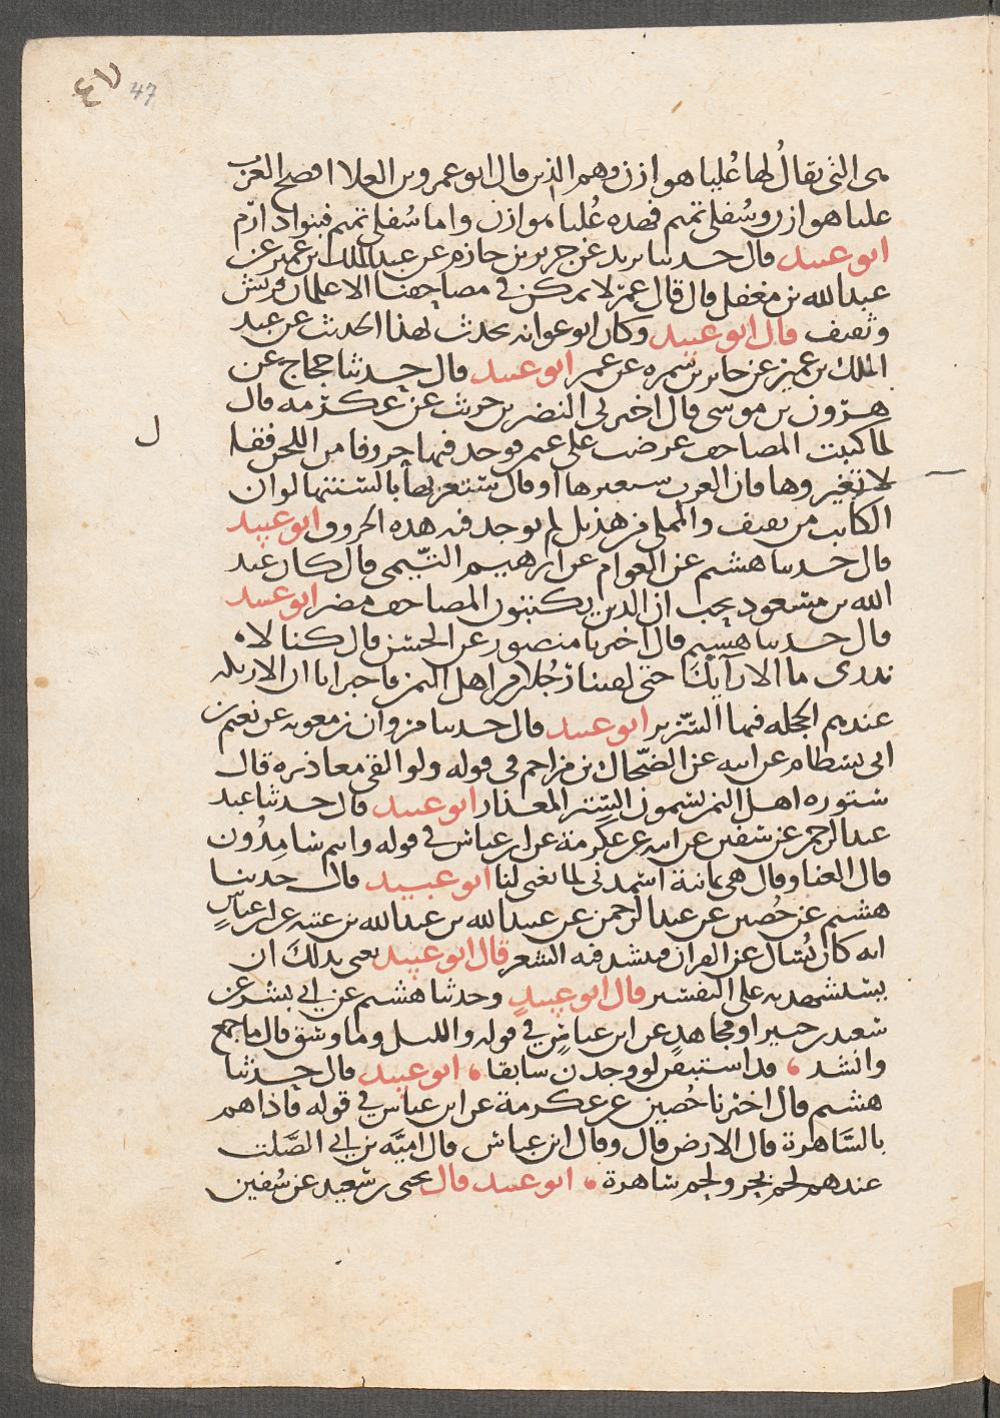 ٤٧ 47
هى التى يقالُ لها عُليا هوازن وهم الذين قال ابو عمرو بن العلا افصح العرب
عليا هوازن وسُفلى تميم فهذه عُليا هوازن واما سُفلى تميم فبنوا دارم
ابو عبيد قال حدثنا يزيد عن جرير بن حازم عن عبد الملك بن عمير عن
عبد الله بن مغفل قال قال عمر لا يمكن في مصاحفنا الا غلمان قريش
وثقيف قال ابو عبيد وكان ابو عوانه يحدث بهذا الحديث عن عبد
الملك بن عمير عن جابر بن سمره عن عمر ابو عبيد قال حدثنا حجاج عن
هرون بن موسى قال اخبرنى النضر بن حرث عن عكرمه قال
ل
لما كتبت المصاحف عرضت على عمر فوجد فيها حروفا من اللحن فقا
لا تغيروها فان العرب ستغيرها او قال ستعربها بالسنتها لو ان
الكاتب من ثقيف والمملى من هذيل لم يوجد فيه هذه الحروف ابو عبيد
قال حدثنا هشيم عن العوام عن ابرهيم التيمى قال كان عبد
الله بن مسعود يحب ان الذين يكتبون المصاحف مضر ابو عبيد
قال حدثنا هشيم قال اخبرنا منصور عن الحسن قال كنا لا
ندرى ما الارايك حتى لقينا رجُلا من اهل اليمن فاخبرانا ان الاريكه
عندهم الحجله فيها السّرير ابو عبيد قال حدثنا مروان بن معويه عن نعيم بن
ابى بسطام عن ابيه عن الضحّاك بن مزاحم فى قوله ولو القى معاذيره قال
ستوره اهل اليمن يسمون السّتر المعذار ابو عبيد قال حدثنا عبد
عبد الرحمن عن سفين عن ابيه عن عكرمة عن ابن عباس في قوله وانتم سامِدُون
قال الغنا وقال هى يمانية اسمدى لنا تغنى لنا ابو عبيد قال حدثنا
هشيم عن حُصين عن عبد الرحمن عن عبيد الله بن عبد الله بن عتبه عن ابن عباسٍ
انه كان يُسال عن القران فينشد فيه الشعر قال ابو عبيد يعنى بذلك ان
يستشهد به على التفسير قال ابو عبيدٍ وحدثنا هشيم عن ابي بشر عن
سعيد بن جبير او مجاهدٍ عن ابن عباسٍ في قوله والليل وما وسق قال ما جمع
وانشد ، قد استسقن لو وجدن سابقا ، ابو عبيد قال حدثنا
هشيم قال اخبرنا حُصين عن عكرمة عن ابن عباس في قوله فاذا هم
بالسَّاهرة قال الارض قال وقال ابن عباس قال اميّه بن ابي الصَّلت
عندهم لحم بحر ولحم ساهرة ، ابو عبيد قال يحيى بن سعيد عن سُفين